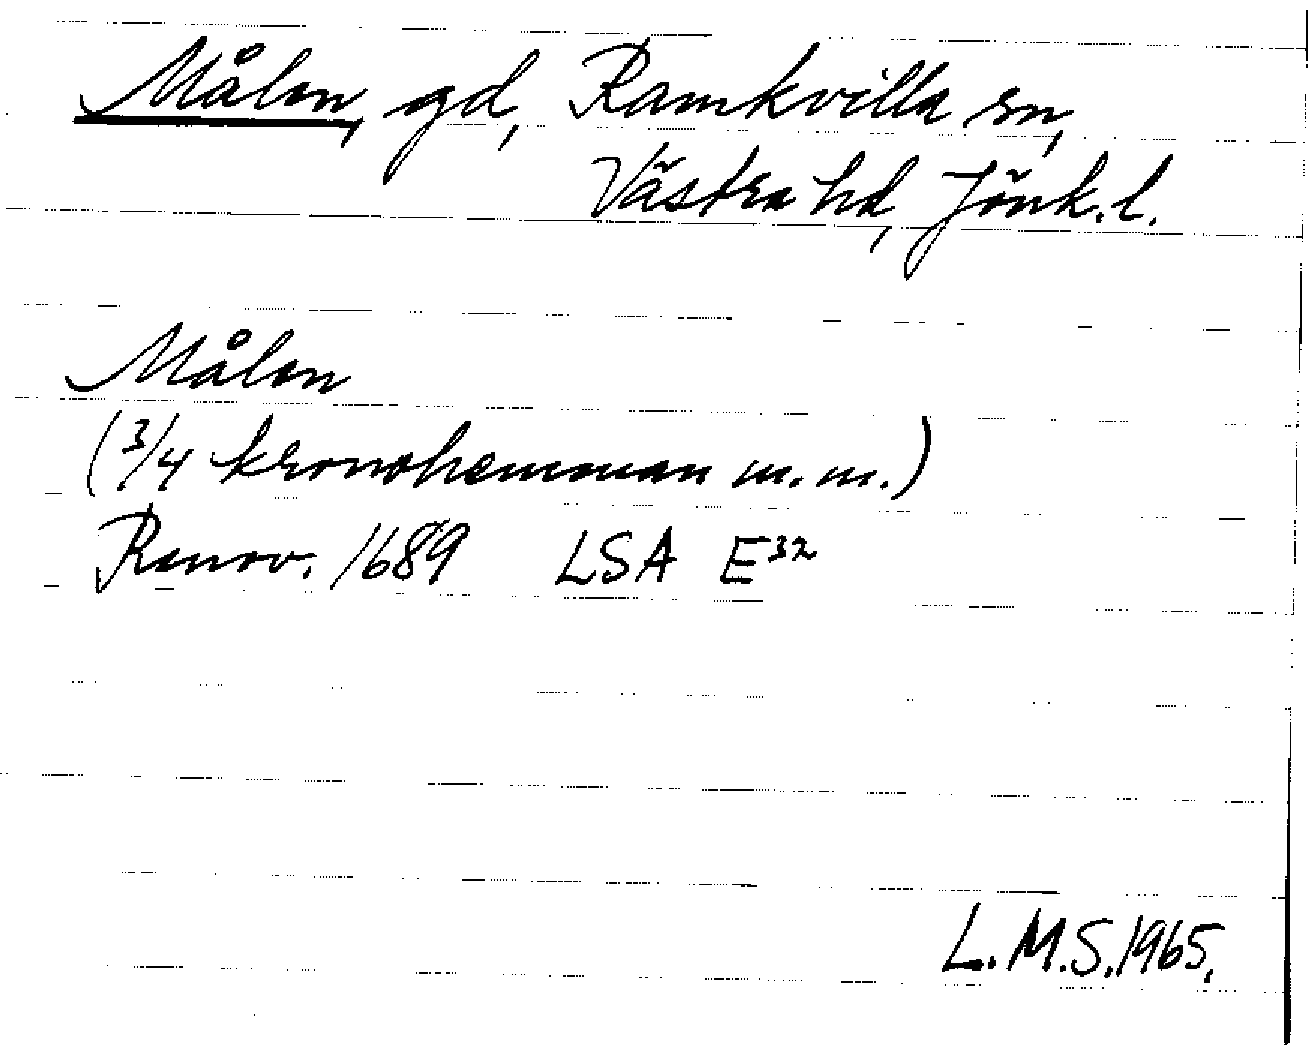 Målen, gd, Ramkvilla sn,
Västra hd, Jönk. l.
Målen
(3/4 kronohemman m.m.)
Renov. 1689 LSA E³²
L.M.S. 1965.